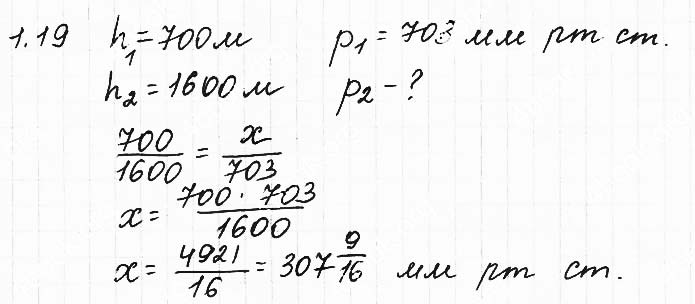 1.19 h₁ = 700 м p₁ = 703 мм рт ст.
h₂ = 1600 м p₂ - ?
700/1600 = x/703
x = 700 · 703/1600
x = 4921/16 = 307 9/16 мм рт ст.